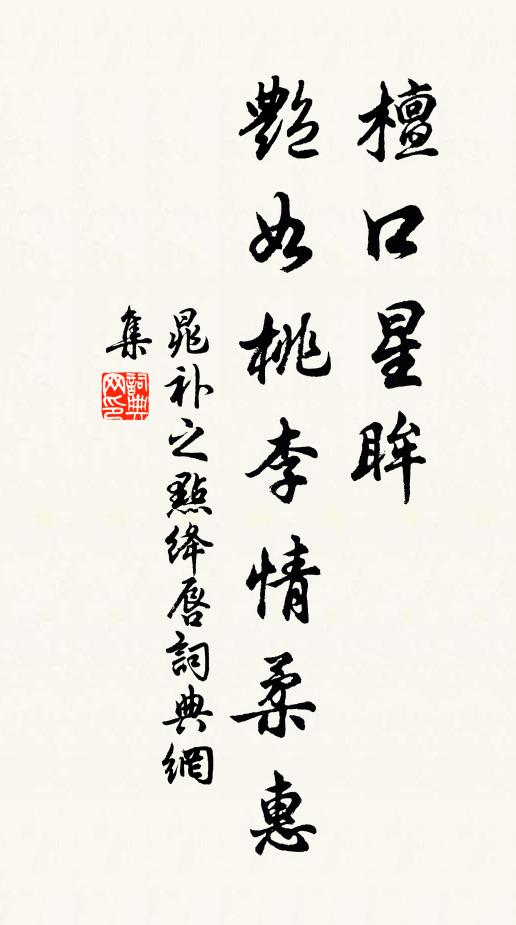 檀口星眸
艷如桃李情柔惠
晁补之點绛唇詞典網
集
詞典
网印